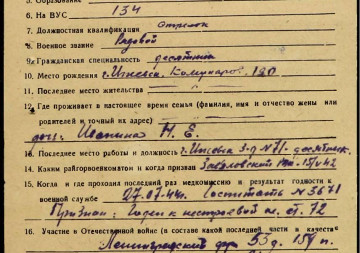 5. Образование
6. На ВУС 134
7. Должностная квалификация Стрелок
8. Военное звание Рядовой
9. Гражданская специальность десятник
10. Место рождения г. Ижевск. Коммунаров. 120
11. Последнее место жительства
12. Где проживает в настоящее время семья (фамилия, имя и отчество жены или
родителей и точный их адрес)
Н. Е.
13. Последнее место работы и должность г. Ижевск з-д №71-десятник.
14. Каким райгорвоенкоматом и когда призван 15/V 42
15. Когда и где проходил последний раз медкомиссию и результат годности к
военной службе 27.07.44г. Госпиталь № 3671
Признан: Годен к нестроевой по ст. 72
16. Участие в Отечественной войне (в составе какой последней части и в качестве
Ленинградский фр. 53д.